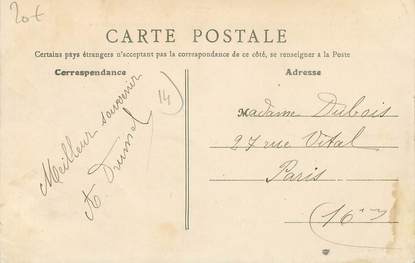 20f
CARTE POSTALE
Certains pays étrangers n'acceptant pas la correspondance de ce côté, se renseigner à la Poste
Correspondance
Adresse
Meilleur souvenir
14
Madame Dubois
27 rue Vital
Paris
(16